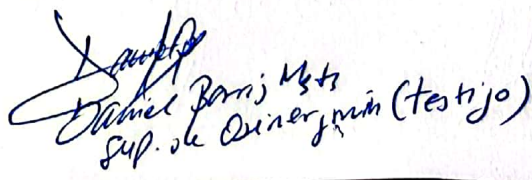 Daniel
Daniel
Sup. de Osinergmin (testigo)